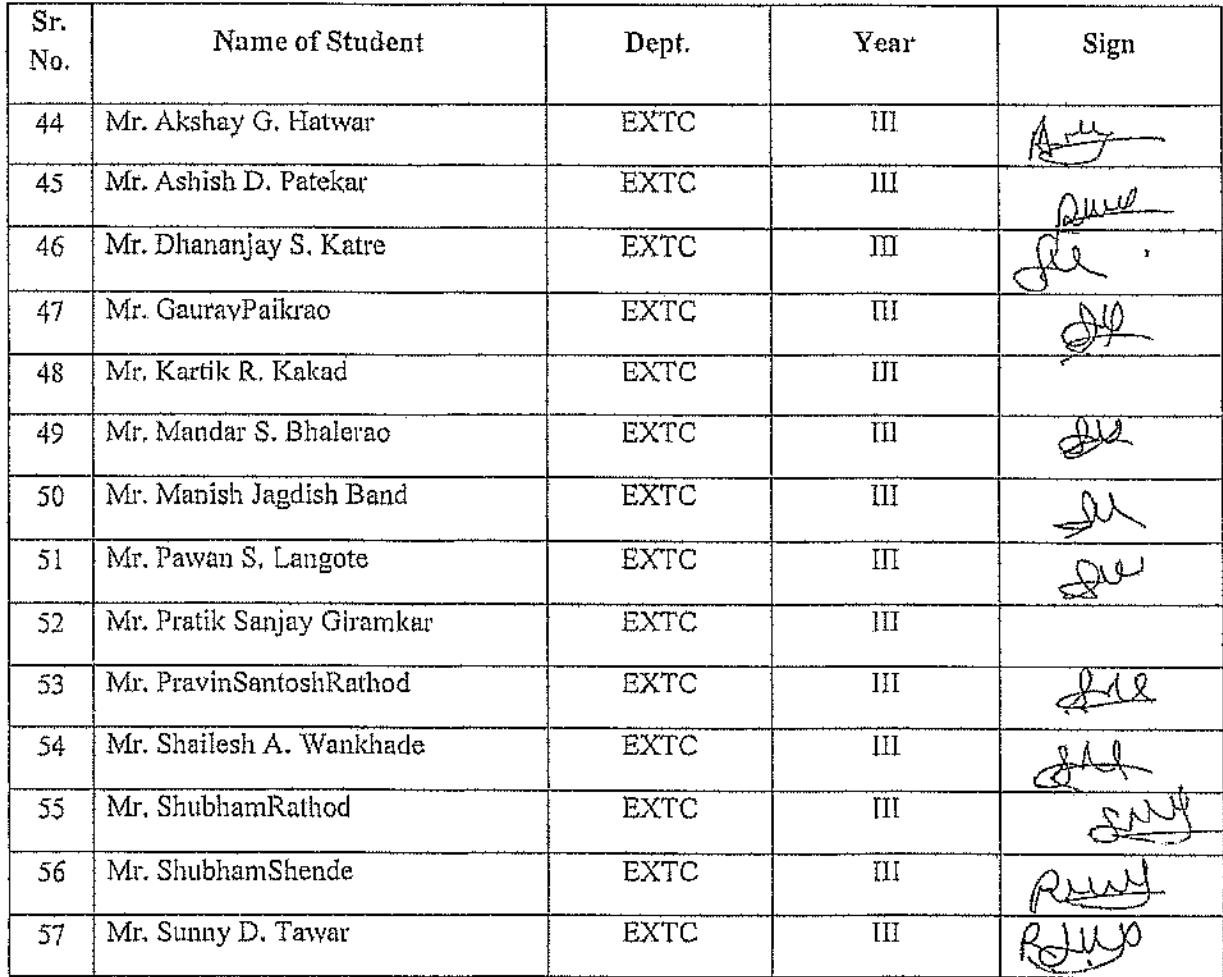 Sr. No. Name of Student Dept. Year Sign
44 Mr. Akshay G. Hatwar EXTC III
45 Mr. Ashish D. Patekar EXTC III
46 Mr. Dhananjay S. Katre EXTC III
47 Mr. GauravPaikrao EXTC III
48 Mr. Kartik R. Kakad EXTC III
49 Mr. Mandar S. Bhalerao EXTC III
50 Mr. Manish Jagdish Band EXTC III
51 Mr. Pawan S. Langote EXTC III
52 Mr. Pratik Sanjay Giramkar EXTC III
53 Mr. PravinSantoshRathod EXTC III
54 Mr. Shailesh A. Wankhade EXTC III
55 Mr. ShubhamRathod EXTC III
56 Mr. ShubhamShende EXTC III
57 Mr. Sunny D. Tawar EXTC III